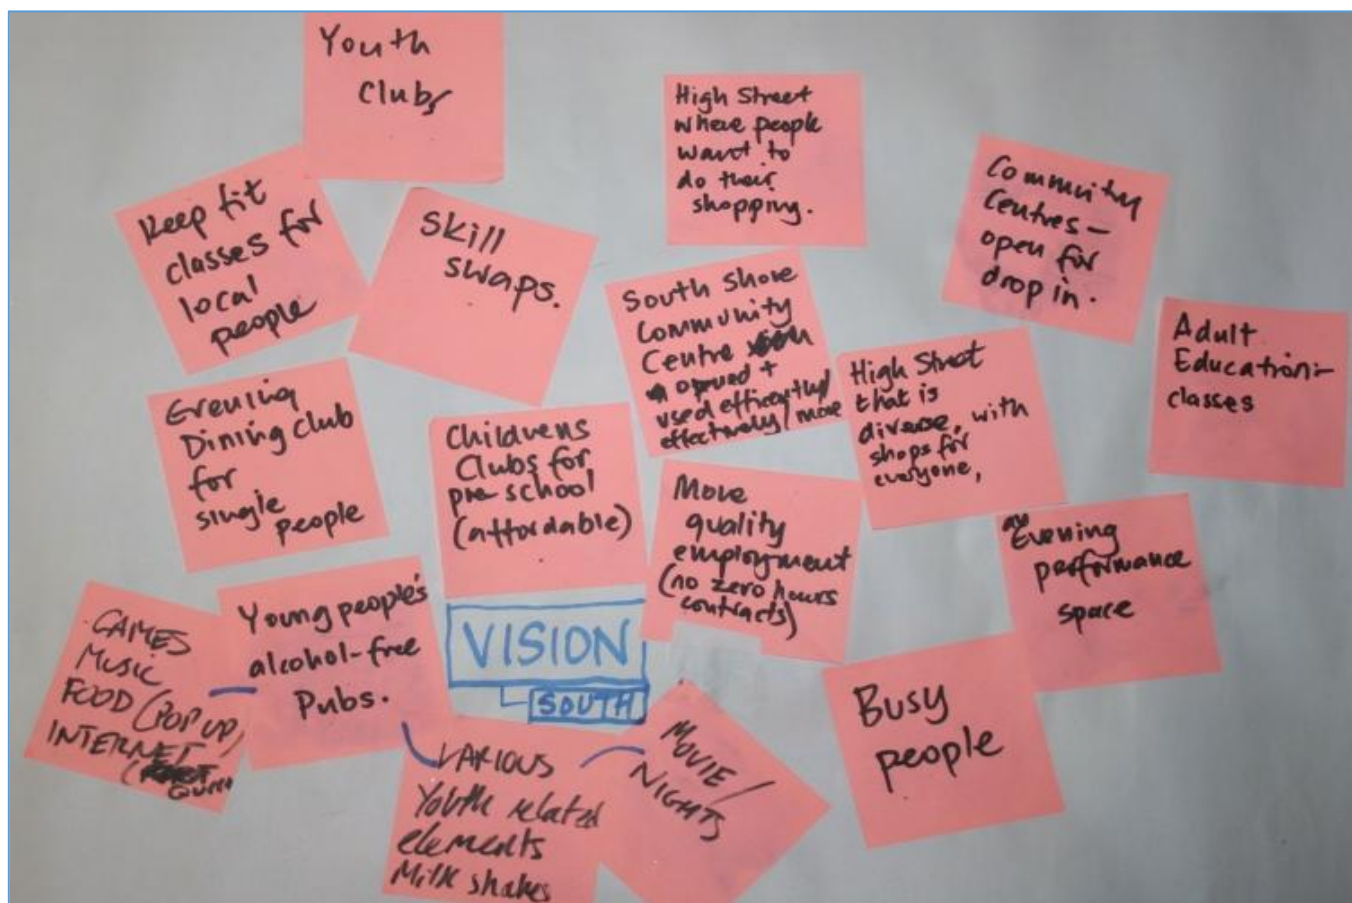 Youth
Clubs
High Street
where people
want to
do their
shopping.
Community
Centres –
open for
drop in.
Keep fit
classes for
local
people
Skill
swaps.
South Shore
Community
Centre
opened +
used efficiently/
effectively/more
High Street
that is
diverse, with
shops for
everyone,
Adult
Education–
classes
Evening
Dining club
for
single
people
Childrens
Clubs for
pre school
(affordable)
More
quality
employment
(no zero hours
contracts)
Evening
performance
space
GAMES
MUSIC
FOOD (POP UP)
INTERNET
Young people's
alcohol-free
Pubs.
VISION
SOUTH
VARIOUS
Youth related
elements
Milk shakes
MOVIE/
NIGHTS
Busy
people